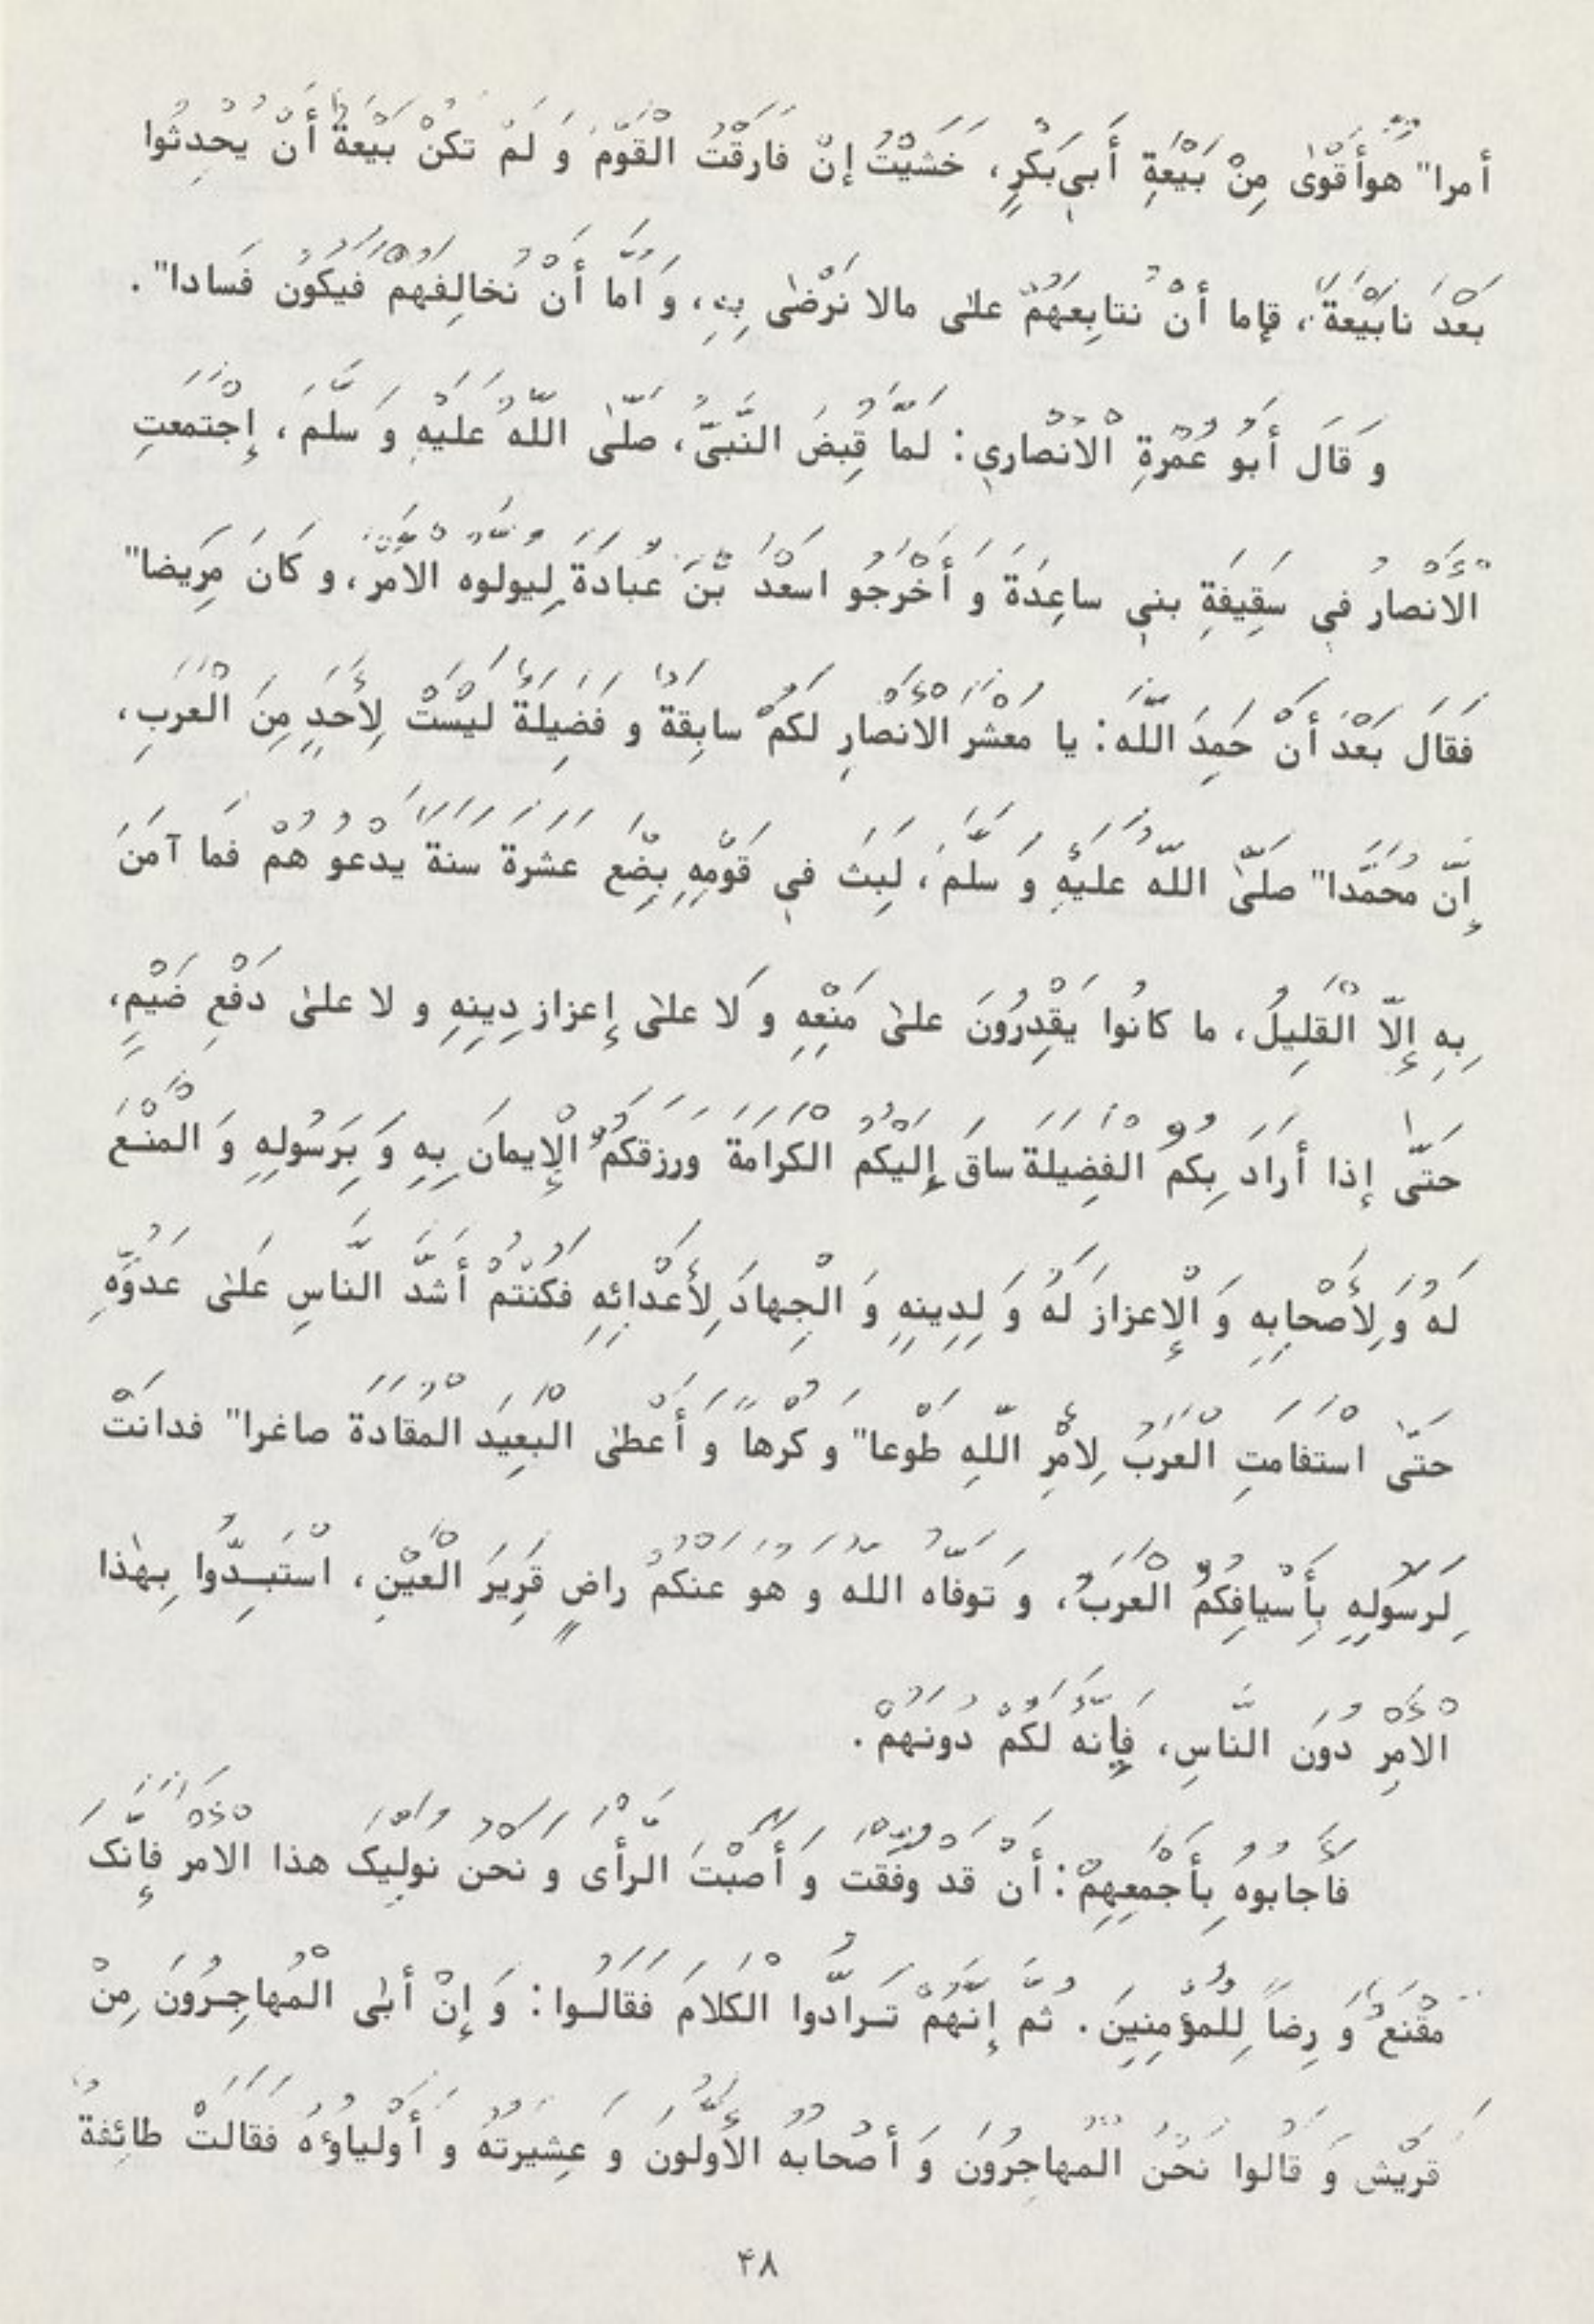 أمرا" هوأَقْوٰى مِنْ بَيْعَةِ أَبيبَكْرٍ، خَشَيْتُ إنْ فارَقْتُ القَوْمَ وَ لَمْ تكُنْ بَيْعةٌ أَنْ يُحدِثُوا
بَعْدَ نابَيْعةً، فَإما أنْ نُتابِعَهُمْ علٰى مالا نَرْضٰى بِهِ، وَ اَمّا أَنْ نُخالِفَهُمْ فَيكُوْنُ فَسادا".
وَ قَالَ أَبُو عُمْرةِ الْانْصارىِ: لَمَّا قُبِضَ النَّبىُّ، صَلّىٰ اللّٰهُ عليْهِ وَ سَلَّمَ، إجْتَمَعَتِ
الْاَنْصارُ فىِ سَقِيفَةِ بنىِ ساعِدَةَ وَ أَخْرَجُو اسعْدَ بْنَ عُبادَةَ لِيولوه الاَمْرَ، وَ كَانَ مَرِيضا"
فَقَالَ بَعْدَ أَنْ حَمِدَ اللّٰهَ: يا مَعْشَرَ الْاَنْصارِ لَكُمْ سابِقةٌ وَ فَضِيلَةٌ ليْسَتْ لِأَحَدٍ مِنَ الْعَرَبِ،
إِنَّ مُحَمَّدا" صَلّىٰ اللّٰهُ عليْهِ وَ سَلَّمَ، لَبِثَ فىِ قَوْمِهِ بِضْعَ عَشَرَةَ سَنَةً يَدْعُو هُمْ فَما آمَنَ
بِهِ إِلّاَ الْقَلِيلُ، ما كانُوا يَقْدِرُونَ علىٰ مَنْعِهِ وَ لا علىٰ إعزاز دِينِهِ و لا علىٰ دَفْعِ ضَيْمٍ،
حَتّىٰ إذا أرادَ بِكُمُ الْفَضِيلَةَ ساقَ إلَيْكُمُ الْكَرامَةَ وَرَزَقَكُمُ الْإيمانَ بِهِ وَ بِرَسُولِهِ وَ الْمَنْعَ
لَهُ وَ لِأَصْحابِهِ وَ الْإعزازَ لَهُ وَ لِدِينِهِ وَ الْجِهادَ لِأَعْدائِهِ فَكُنْتُمْ أَشَدَّ النَّاسِ عَلىٰ عَدُوِّهِ
حَتّىٰ اسْتَفامَتِ الْعَرَبُ لِاَمْرِ اللّٰهِ طَوْعا" وَ كُرْهاً وَ أَعْطىٰ الْبَعِيدَ الْمُقادَةَ صاغرا" فَدانَتْ
لِرَسُولِهِ بِأَسْيافِكُمُ الْعَرَبُ، وَ تَوفّاهُ اللهُ وَ هُوَ عَنْكُمْ راضٍ قَرِيرَ الْعَيْنِ، اسْتَبِـدُّوا بِهٰذا
الْاَمْرِ دُونَ النَّاسِ، فَإِنَّهُ لَكُمْ دُونَهُمْ.
فَأَجابوهُ بِأَجْمَعِهِمْ: أَنْ قَدْ وفِّقْتَ وَ أَصَبْتَ الرَّأْىَ وَ نَحْنُ نُولِيكَ هذا الْاَمْرَ فإِنَّکَ
مَقْنَعٌ وَ رِضاً لِلْمُؤْمِنِينَ. ثُمَّ إِنَّهُمْ تَـرادُّوا الْكَلامَ فَقَالُـوا: وَ إِنْ أَبٰى الْمُهاجِـرُونَ مِنْ
قُرَيْش وَ قَالُوا نَحْنُ الْمُهاجِرُونَ وَ أَصْحابُهُ الْأَوَّلُونَ وَ عَشِيرَتُهُ وَ أَوْلِياؤُهُ فَقَالَتْ طائِفَةٌ
۴۸